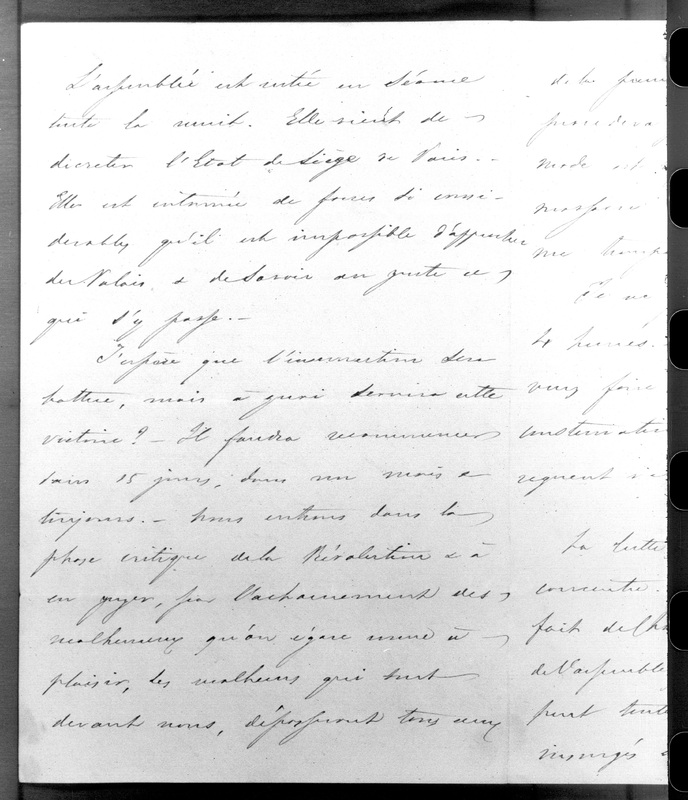 L'assemblée est restée en Séance
toute la nuit. Elle vient de
decreter l'Etat de Siège de Paris. -
Elle est entourée de forces si consi-
derables qu'il est impossible d'approcher
du Palais & de Savoir au juste ce
qui s'y passe. -
J'espère que l'insurrection sera
battue, mais à quoi servira cette
victoire? - Il faudra recommencer
dans 15 jours, dans un mois &
toujours. - Nous entrons dans la
phase critique de la Révolution & à
en juger, par l'acharnement des
malheureux qu'on égare même à
plaisir, les malheurs qui sont
devant nous, dépasseront tous ceux
de la
mode est
massacre
me
Je
4 heures.
vous faire
consternation
La lutte
concentre.
fait de
de l'assemblé
peut
insurgés